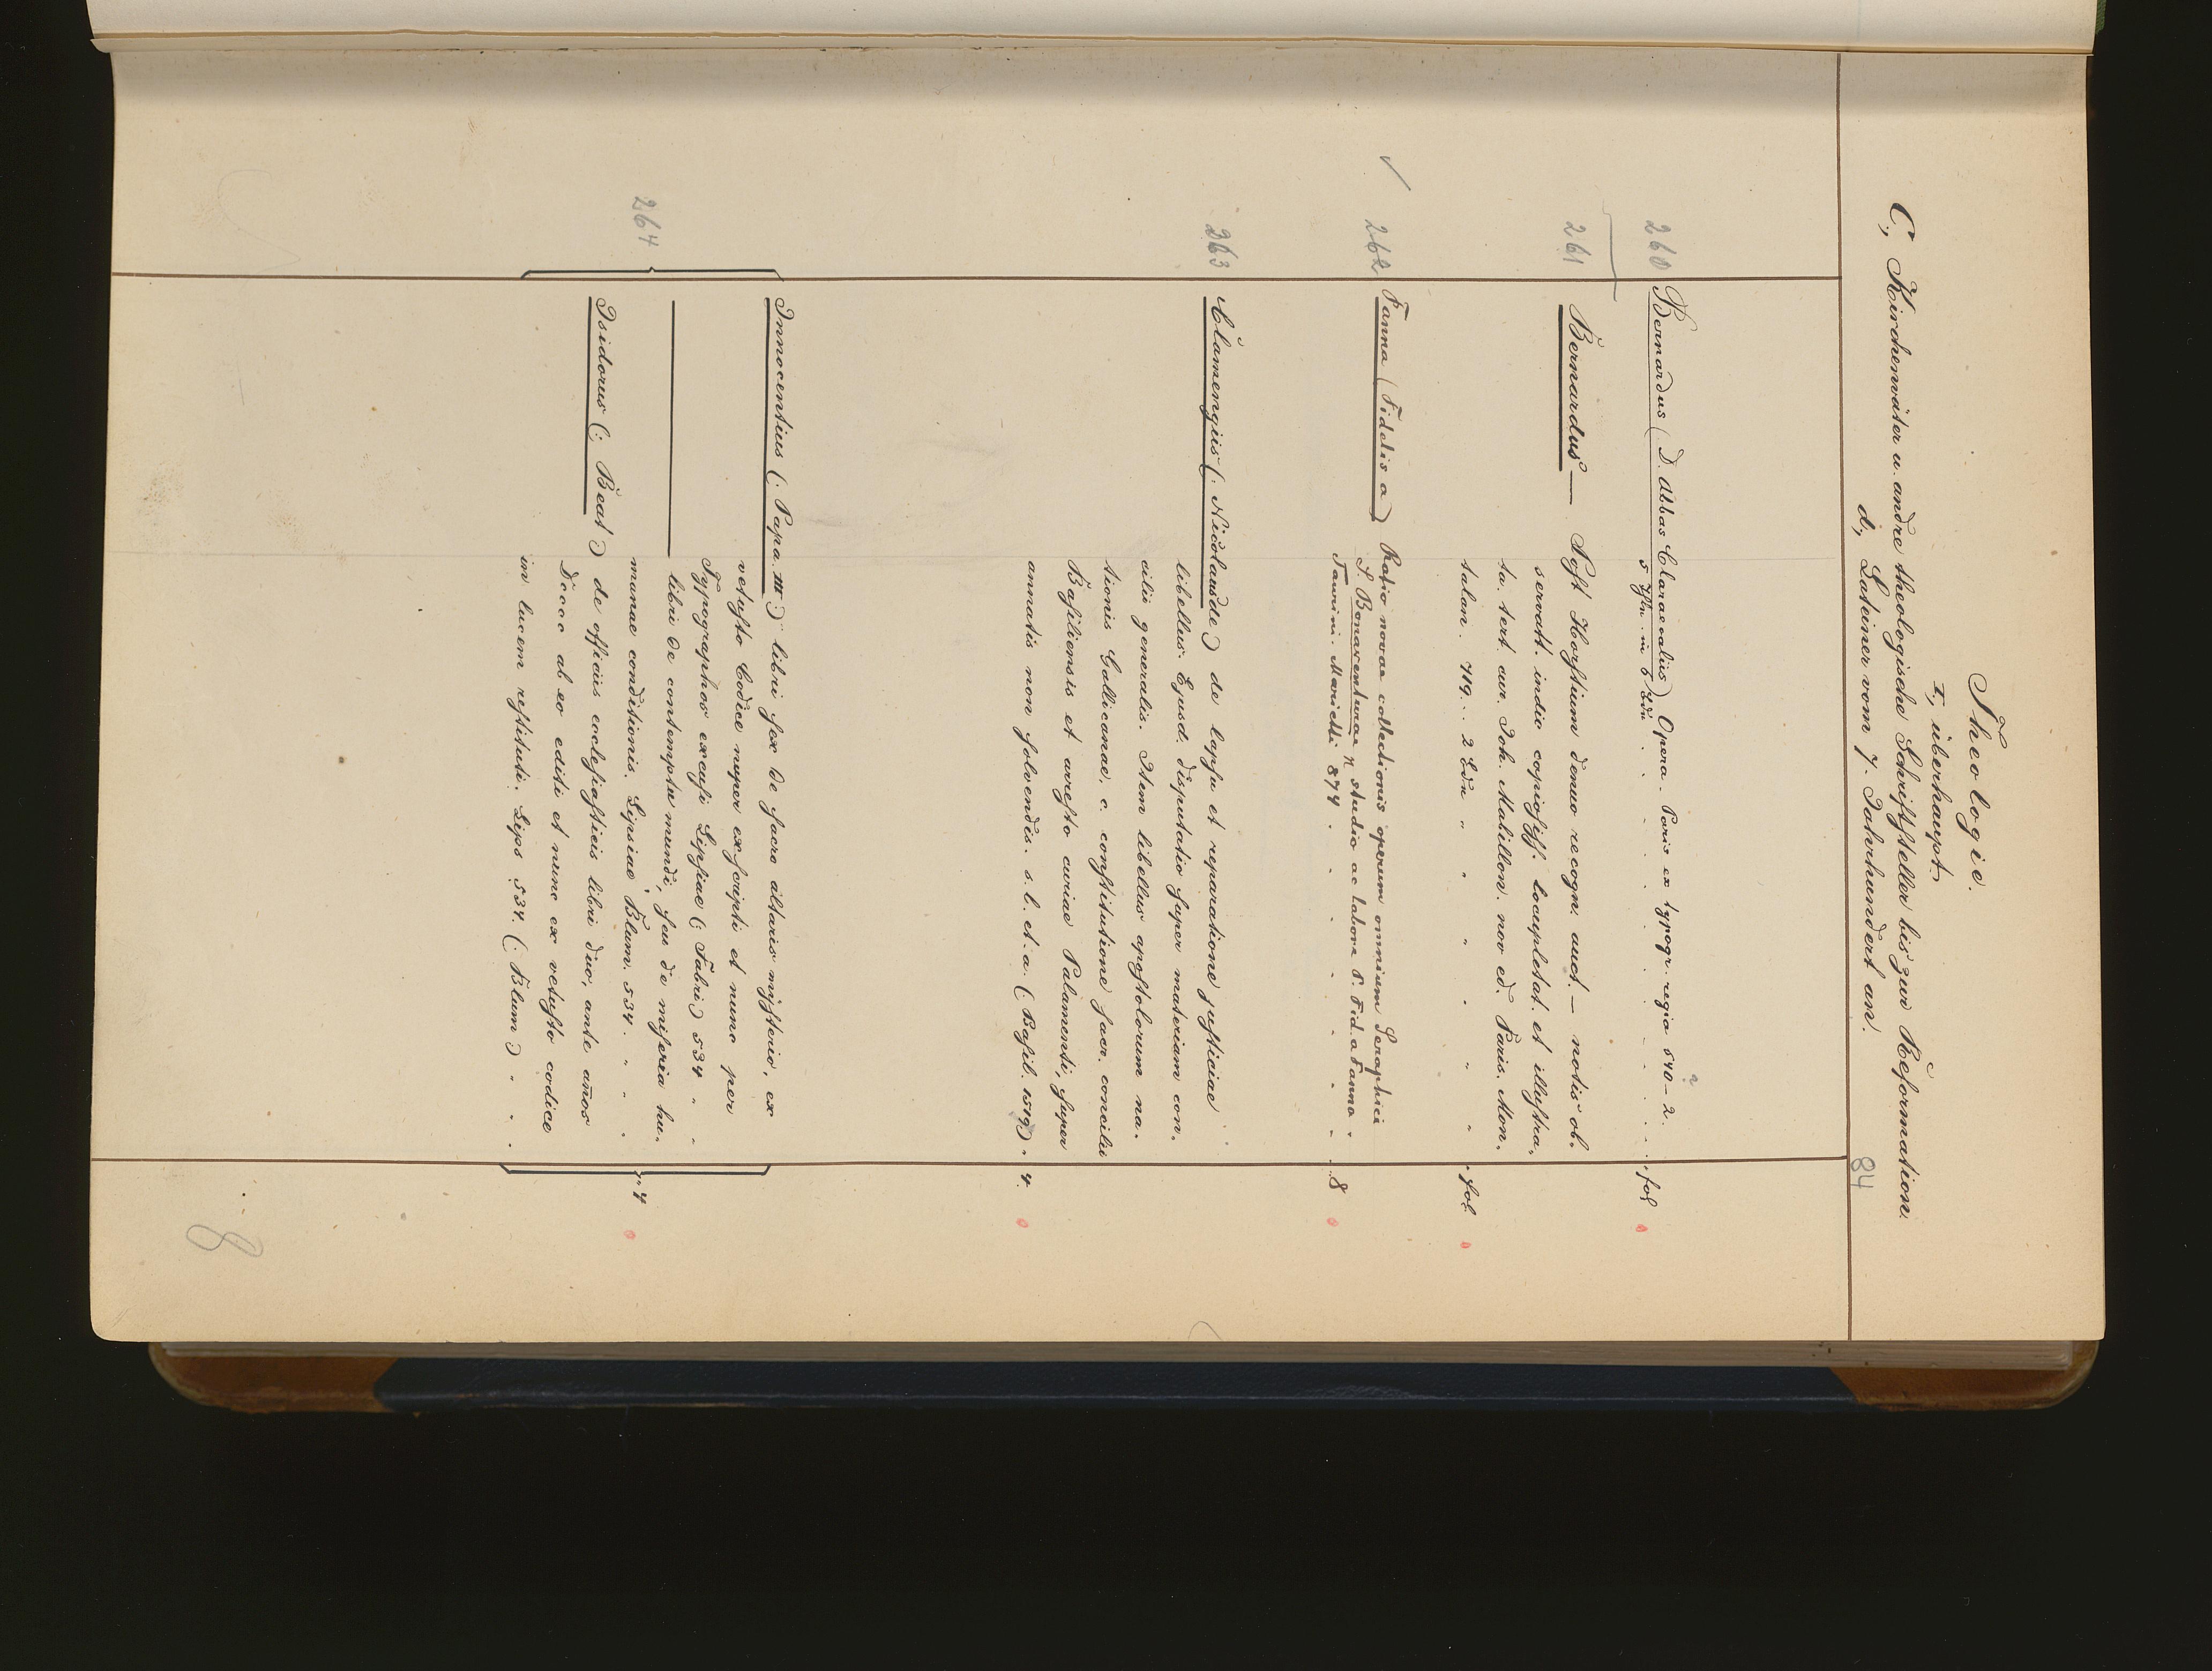 Theologie.
I, überhaupt.
C, Kirchenväter u. andre theologische Schriftsteller bis zur Reformation.
d, Lateiner vom 7. Jahrhundert an.
84
260 Bernardus (D. Abbas Claraevallis) Opera. Paris ex typogr. regia 640-2. fol
5 Thn in 5 Bdn
261 Bernardus — Post Horstium denuo recogn. auct. — notis ob-
servatt. indic copiosiss. locupletat. et illustra-
ta. tert. cur. Joh. Mabillon. nov ed. Paris. Mon-
talan. 719.. 2 Bdn " " " " " " fol.
262 Fanna (Fidelis a) Ratio novae collectionis operum omnium Seraphici
S. Bonaventurae studio ac labore P. Fid. a Fanna.
Taurini. Marietti 874 . . . . . . 8
263 Clamengiis (: Nicolaus de) de lapsu et reparatione justiciae
libellus. Ejusd. disputatio super materiam con-
cilii generalis. Item libellus apostolorum na-
tionis Gallicanae, c. constitutione sacr. concilii
Basiliensis et arresto curiae Palamenti, super
annatis non solvendis. s. l. et. a. (: Basil. 1519). 4.
264
Innocentius (: Papa. III) libri sex de sacro altaris mysterio, ex
vetusto Codice nuper exscripti et nunc per
Typographos excusi Lipsiae (: Fabri) 534 " "
libri de contemptu mundi, seu de miseria hu-
manae conditionis. Lipsiae, Blum. 534. " " . " 4
Isidorus (: Beat) de officiis ecclesiasticis libri duo, ante años
Dccc ab eo editi et nunc ex vetusto codice
in lucem restituti. Lips. 534. (: Blum) " " .
8